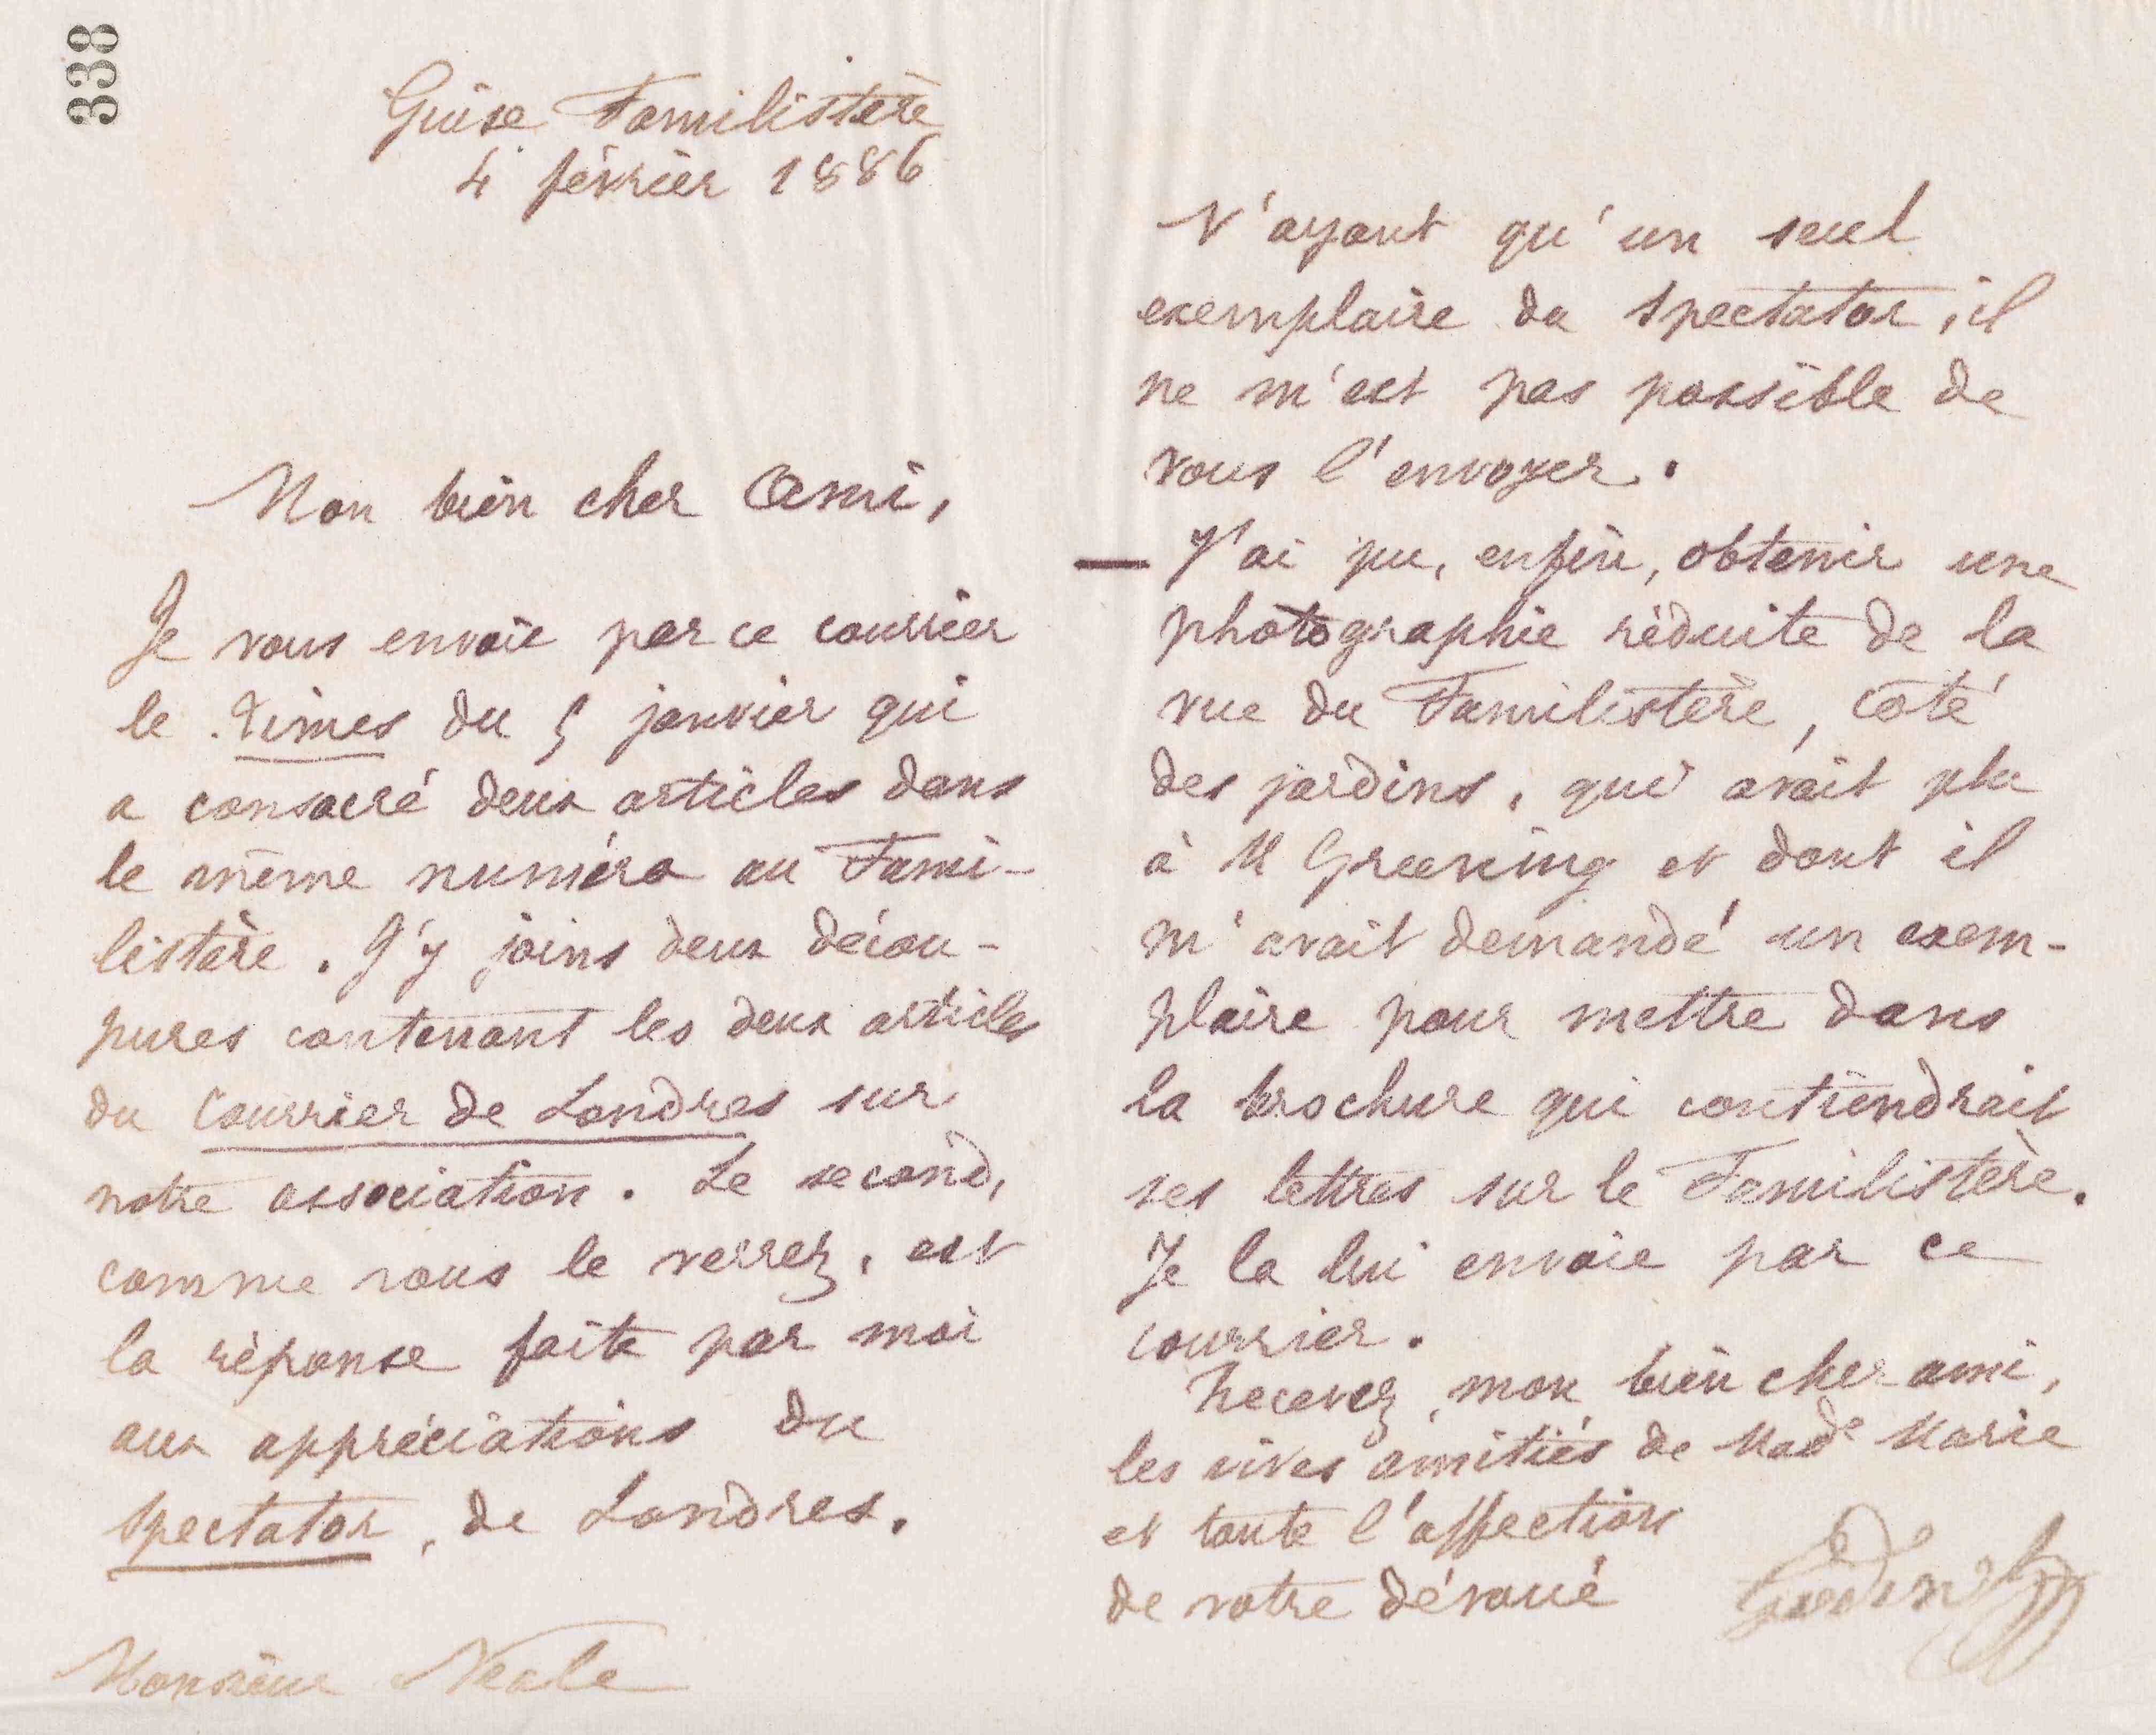 338
Guise Familistère
4 février 1886
Mon bien cher Ami,
Je vous envoie par ce courrier
le Times du 5 janvier qui
a consacré deux articles dans
le même numéro au Fami-
listère. J'y joins deux décou-
pures contenant les deux articles
du Courrier de Londres sur
notre association. Le second,
comme vous le verrez, est
la réponse faite par moi
aux appréciations du
Spectator, de Londres.
Monsieur Neale
N'ayant qu'un seul
exemplaire du Spectator, il
ne m'est pas possible de
vous l'envoyer.
— J'ai pu, enfin, obtenir une
photographie réduite de la
vue du Familistère, côté
des jardins, qui avait plu
à M Greening et dont il
m'avait demandé un exem-
plaire pour mettre dans
la brochure qui contiendrait
ses lettres sur le Familistère.
Je la lui envoie par ce
courrier.
Recevez, mon bien cher ami,
les vives amitiés de Made Marie
et toute l'affection
de votre dévoué
Godin